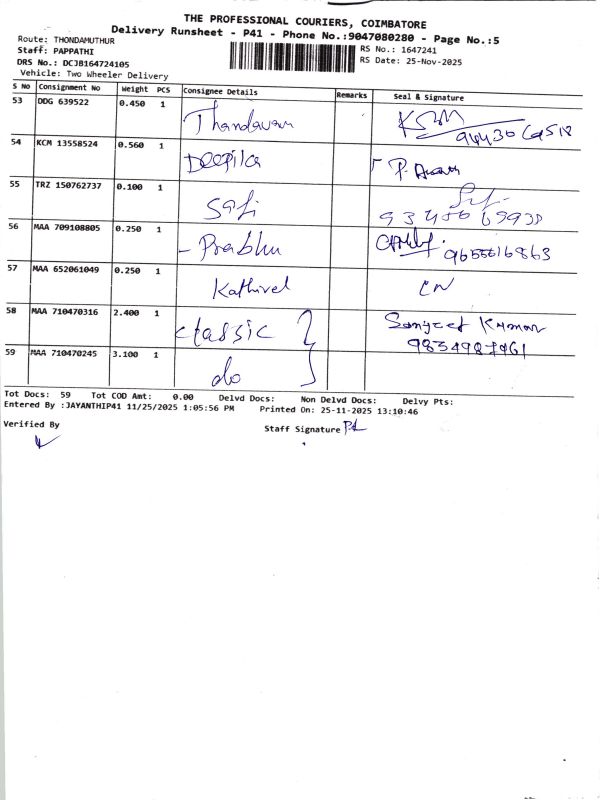 THE PROFESSIONAL COURIERS, COIMBATORE
Delivery Runsheet - P41 - Phone No.:9047080280 - Page No.:5
Route: THONDAMUTHUR
RS No.: 1647241
Staff: PAPPATHI
RS Date: 25-Nov-2025
DRS No.: DCJB164724105
Vehicle: Two Wheeler Delivery
S No Consignment No Weight PCS Consignee Details Remarks Seal & Signature
53 DDG 639522 0.450 1 Thandavam KSM
54 KCM 13558524 0.560 1 Deepika P.
55 TRZ 150762737 0.100 1 Safi
56 MAA 709108805 0.250 1 - Prabhu 9655616863
57 MAA 652061049 0.250 1 Kathivel CN
58 MAA 710470316 2.400 1 classic Sanjeet Kumar
59 MAA 710470245 3.100 1 do
Tot Docs: 59 Tot COD Amt: 0.00 Delvd Docs: Non Delvd Docs: Delvy Pts:
Entered By :JAYANTHIP41 11/25/2025 1:05:56 PM Printed On: 25-11-2025 13:10:46
Verified By
Staff Signature